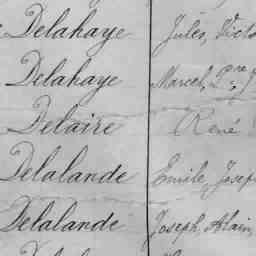 Delahaye Jules, Victo
Delahaye Marcel, Pre J
Delaire René
Delalande Emile, Josep
Delalande Joseph, Alain,